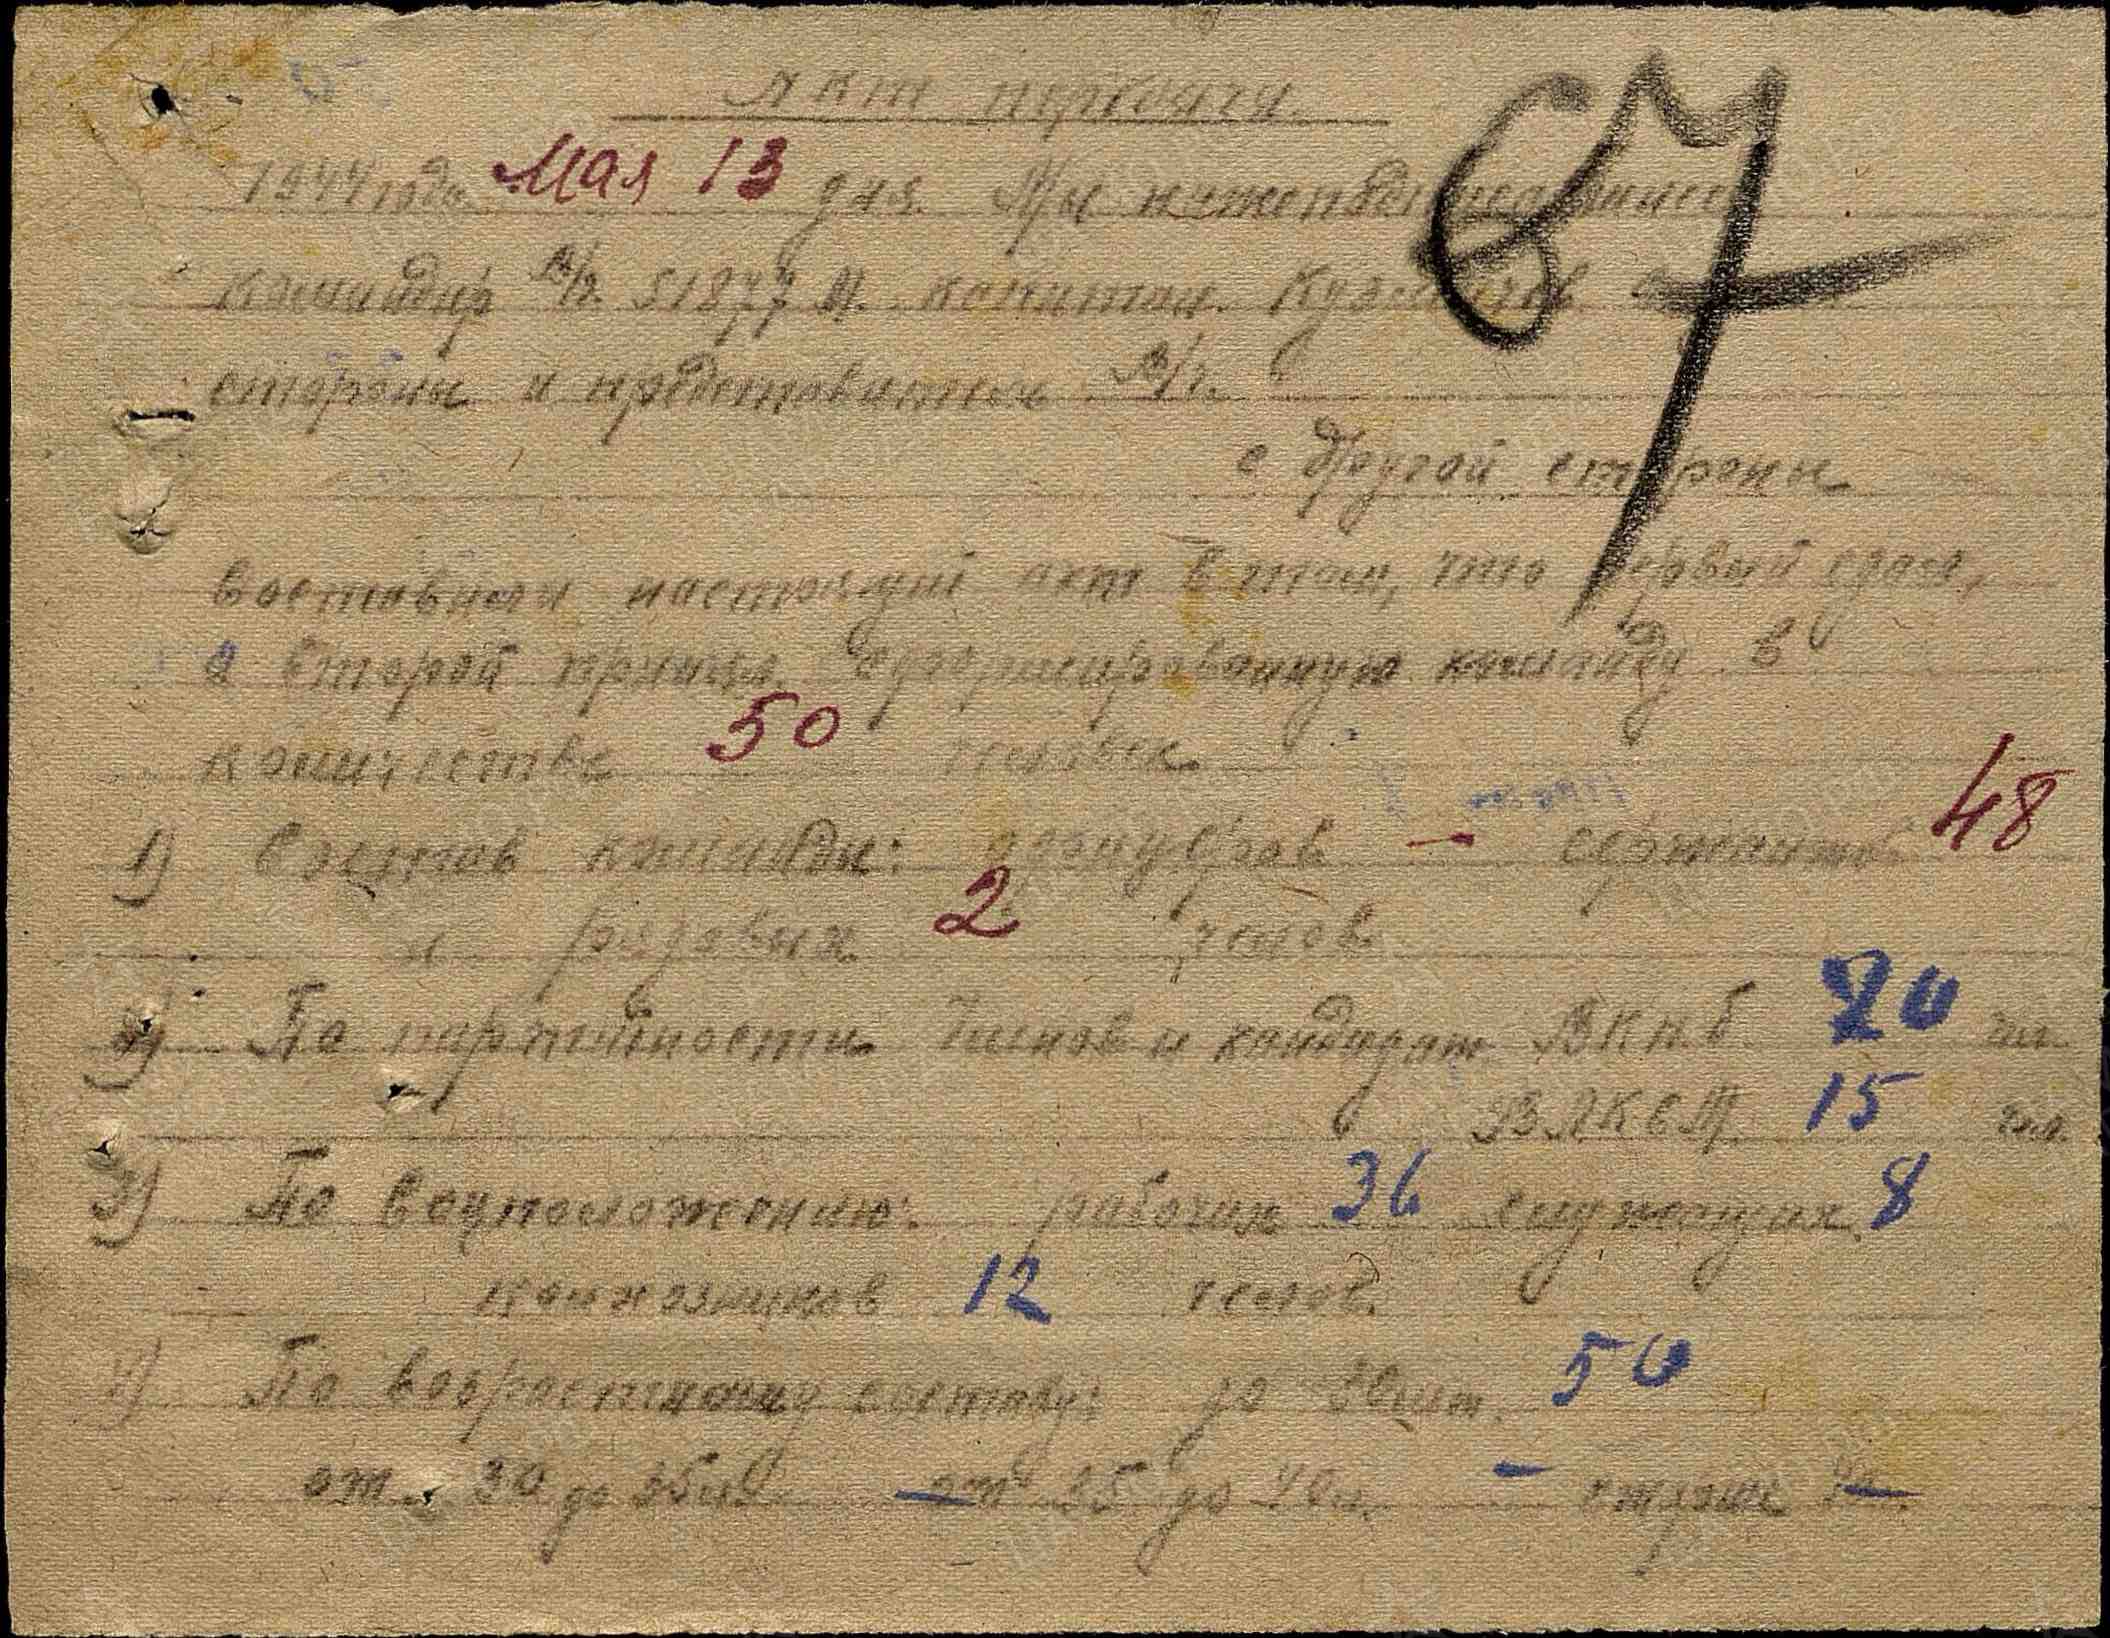 Акт передачи.
67
1944 года Мая 13 дня. Мы нижеподписавшиеся
командир в/ч 51877 М. капитан
стороны и представитель в/ч
с другой стороны
составили настоящий акт в том, что первый сдал,
а второй принял сформированную команду в
количестве 50 человек
1) Состав команды: офицеров – сержантов 48
и рядовых 2 челов.
2) По партийности Членов и кандидат ВКПб 20 чел.
ВЛКСМ 15 чел.
3) По соцположению: рабочих 36 служащих 8
колхозников 12 челов.
4) По возрастному составу: до 30 лет. 50
от 30 до 35 – от 35 до 40 л. – старше –